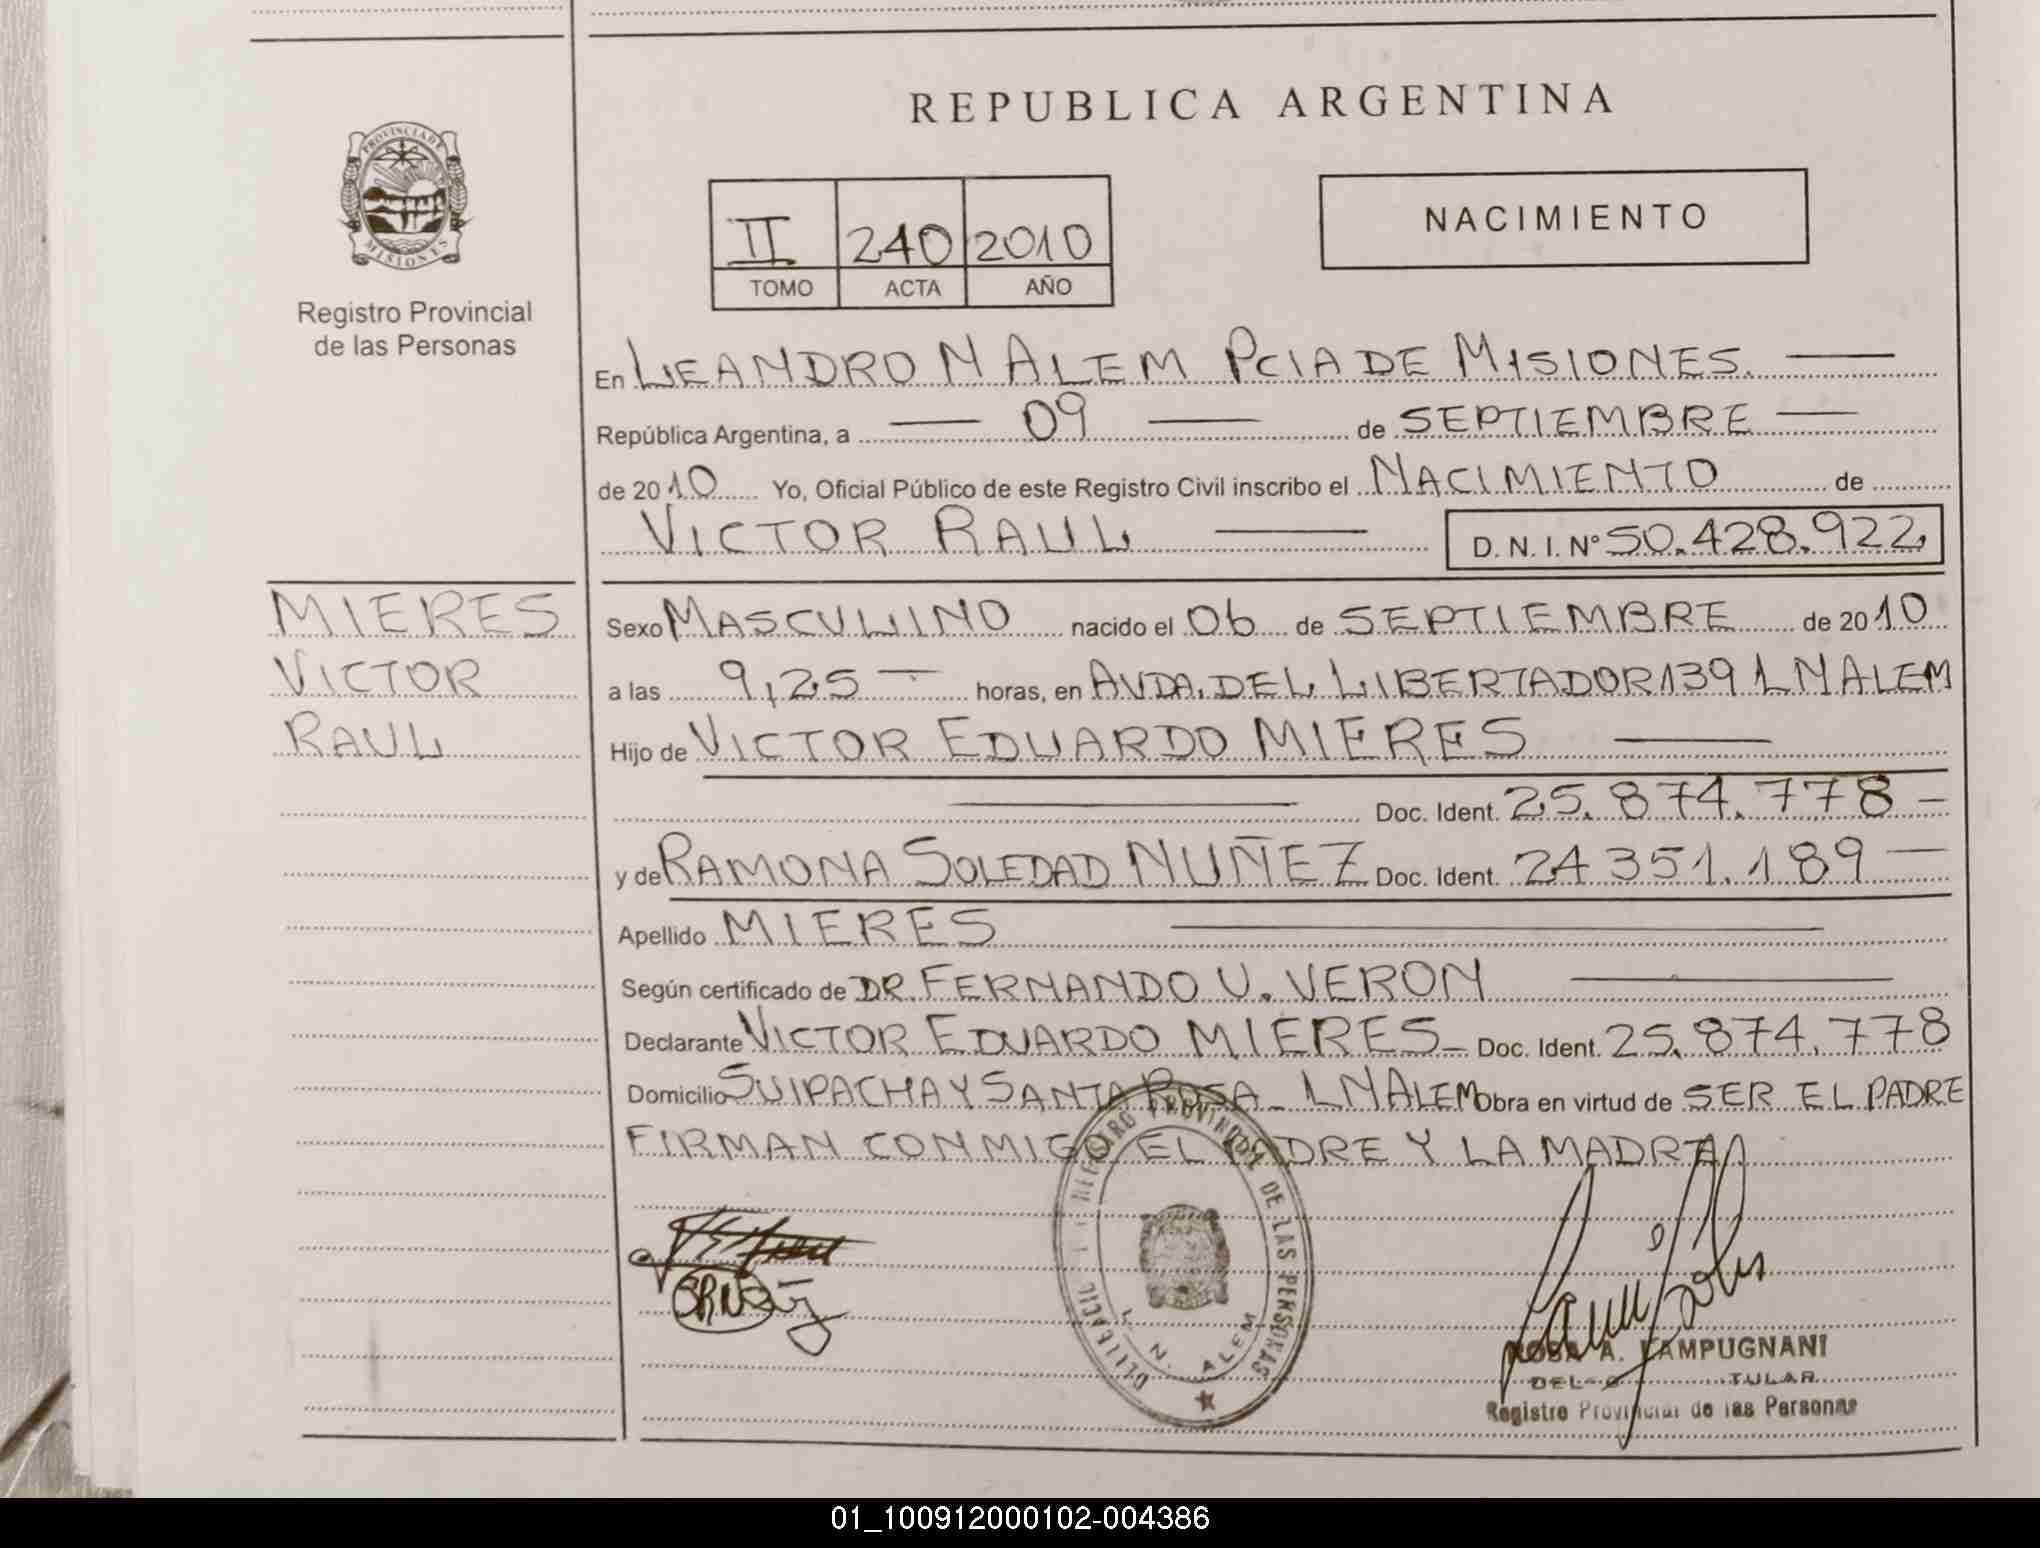 REPUBLICA ARGENTINA
PROVINCIA DE MISIONES
Registro Provincial
de las Personas
II 240 2010
TOMO ACTA AÑO
NACIMIENTO
En LEANDRO N ALEM PCIA DE MISIONES.
República Argentina, a 09 de SEPTIEMBRE
de 2010 Yo, Oficial Público de este Registro Civil inscribo el NACIMIENTO de
VICTOR RAUL D. N. I. Nº 50.428.922
MIERES
VICTOR
RAUL
Sexo MASCULINO nacido el 06 de SEPTIEMBRE de 2010
a las 9,25 horas, en AVDA. DEL LIBERTADOR 139 L N ALEM
Hijo de VICTOR EDUARDO MIERES
Doc. Ident. 25.874.778
y de RAMONA SOLEDAD NUÑEZ Doc. Ident. 24351.189
Apellido MIERES
Según certificado de DR. FERNANDO U. VERON
Declarante VICTOR EDUARDO MIERES Doc. Ident. 25.874.778
Domicilio SUIPACHA Y SANTA ROSA - L N ALEM Obra en virtud de SER EL PADRE
FIRMAN CONMIGO EL PADRE Y LA MADRE
REGISTRO PROVINCIAL DE LAS PERSONAS
L. N. ALEM
ROSA A. LAMPUGNANI
Registro Provincial de las Personas
01_100912000102-004386